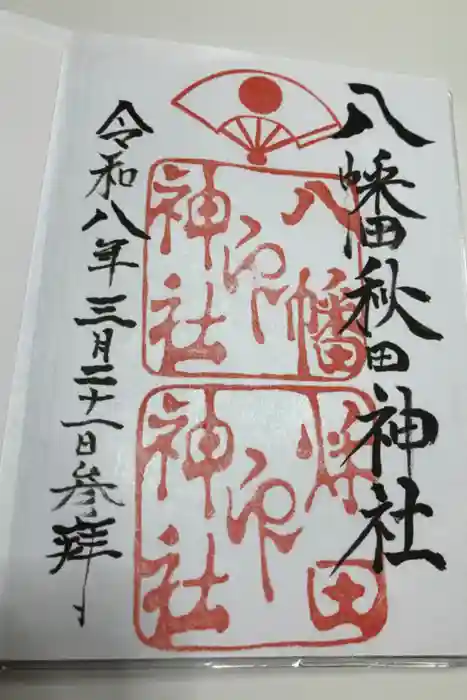 八幡秋田神社
八幡
神社
印
秋田
神社
印
令和八年三月二十一日参拝